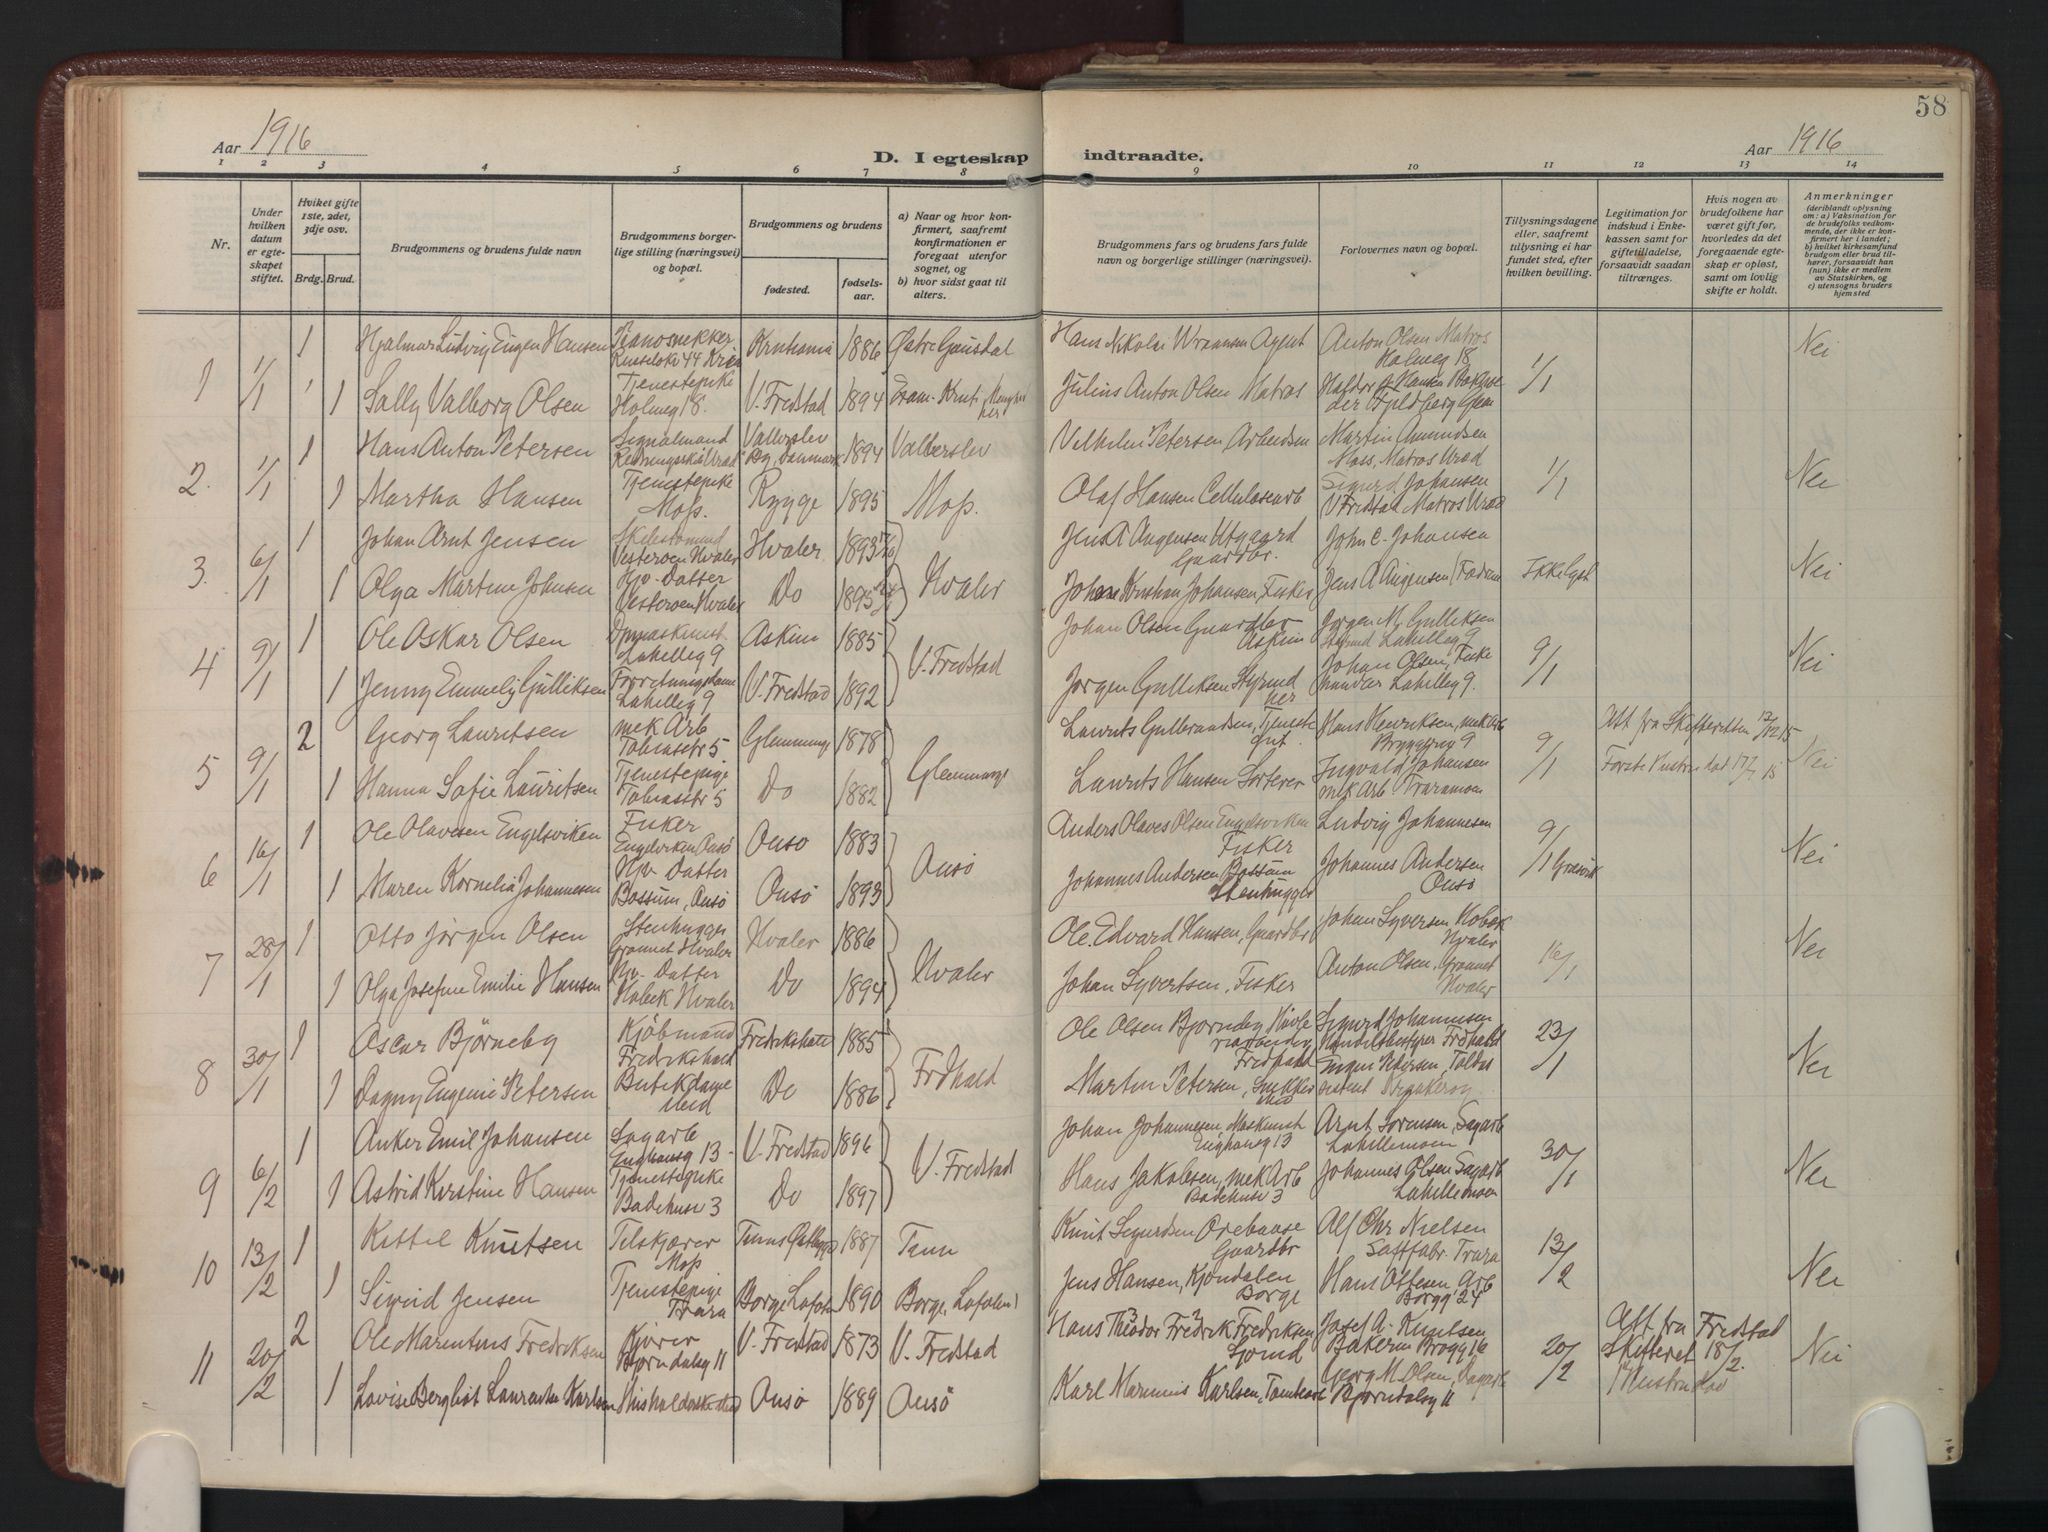 58
Aar 1916
D. I egteskap indtraadte.
Aar 1916
1 2 3 4 5 6 7 8 9 10 11 12 13 14
Nr.
Under hvilken datum er egteskapet stiftet.
Hviket gifte 1ste, 2det, 3dje osv.
Brdg. Brud.
Brudgommens og brudens fulde navn
Brudgommens borgerlige stilling (næringsvei) og bopæl.
Brudgommens og brudens
fødested.
fødselsaar.
a) Naar og hvor konfirmert, saafremt konfirmationen er foregaat utenfor sognet, og
b) hvor sidst gaat til alters.
Brudgommens fars og brudens fars fulde navn og borgerlige stillinger (næringsvei).
Forlovernes navn og bopæl.
Tillysningsdagene eller, saafremt tillysning ei har fundet sted, efter hvilken bevilling.
Legitimation for indskud i Enkekassen samt for giftetilladelse, forsaavidt saadan tiltrænges.
Hvis nogen av brudefolkene har været gift før, hvorledes da det foregaaende egteskap er opløst, samt om lovlig skifte er holdt.
Anmerkninger
(deriblandt oplysning om: a) Vaksination for de brudefolks vedkommende, der ikke er konfirmert her i landet; b) hvilket kirkesamfund brudgom eller brud tilhører, forsaavidt han (hun) ikke er medlem av Statskirken, og c) utensogns bruders hjemsted
1 1/1 1 Hjalmar Ludvig Eugen Hansen Pianosnekker 44 1886 Østre Gausdal Hans Nikolai Agent Anton Olsen Matros Holmeg 18 1/1 Nei
1 Sally Valborg Olsen Tjenestepike Holmeg 18. V. Fredstad 1894 Julius Anton Olsen Matros
2. 1/1 1 Hans Anton Petersen Signalmand Danmark 1894 Valberslev Vilhelm Petersen Arbeidsm Martin Amundsen Moss, Matros 1/1 Nei
1 Martha Hansen Tjenestepike Moss. Rygge 1895 Moss. Olaf Hansen Cellulosearb Sigurd Johansen V Fredstad Matros
3. 6/1 1 Johan Arnt Jensen Vesterøen Hvaler Hvaler 1893 Hvaler Gaardbr. John C. Johansen Ikke lyst Nei
1 Olga Martine Johnsen Hjv. Datter Vesterøen Hvaler Do 1895 Johan Kristian Johansen, Fisker
4 9/1 1 Ole Oskar Olsen Lahelleg 9 Askim 1885 V. Fredstad Johan Olsen Gaardbr Askim Jørgen M. Gulliksen Styrmd Lahelleg 9 9/1 Nei
1 Jenny Emmely Gulliksen Forretningsdame Lahelleg 9 V. Fredstad 1892 Jørgen Gulliksen Styrmd her Johan Olsen, Fiskehandler Lahelleg 9.
5 9/1 2 Georg Lauritsen mek Arb Tobiasstr 5 Glemminge 1878 Glemminge Laurits Gulbrandsen, Hans Henriksen, mek Arb Bryggerig 9 9/1 Att fra Skifteretten 17/12 15 Nei
1 Hanna Sofie Lauritsen Tjenestepige Tobiasstr 5 Do 1882 Laurits Hansen Sorterer Ingvald Johansen mek Arb Traramoen
6 16/1 1 Ole Olavesen Engelsviken Fisker Engelsviken Onsø Onsø 1883 Onsø Anders Olaves Olsen Engelsviken Fisker Ludvig Johannesen 9/1 Græsvik Nei
1 Maren Kornelia Johannesen Hjv. Datter Bossum, Onsø Onsø 1893 Johannes Andersen Bossum Stenhugger Johannes Andersen Onsø
7 28/1 1 Otto Jørgen Olsen Stenhugger Hvaler Hvaler 1886 Hvaler Ole Edvard Hansen, Gaardbr Johan Syversen Hobæk Hvaler 16/1 Nei
1 Olga Josefine Emilie Hansen Hjv. Datter Hobæk Hvaler Do 1894 Johan Syvertsen, Fisker Anton Olsen, Hvaler
8 30/1 1 Oscar Bjørneby Kjøbmand Fredrikshald Fredrikshald 1885 Frdhald Ole Olsen Bjørneby Fredhald Sigurd Johannesen Handelsbestyrer Frdhald 23/1 Nei
1 Dagny Eugenie Petersen Butikdame Do 1886 Martin Petersen, Snekker
9 6/2 1 Anker Emil Johansen Sagarb Enghausg 13 V. Fredstad 1896 V. Fredstad Johan Johannesen Maskinist Enghausg 13 Arnt Sørensen, Sagarb Lahellemoen 30/1 Nei
1 Astrid Kirstine Hansen Tjenestepike Badehusg 3 Do 1897 Hans Jakobsen, mek Arb Badehusg 3 Johannes Olsen Sagarb Lahellemoen
10 13/2 1 Kittel Knutsen Tilskjærer Moss 1887 Tinn Knut Sigurdsen Gaardbr Alf Chr Nielsen Saftfabr. Trara 13/2 Nei
1 Sigrid Jensen Tjenestepige Trara Borge, Lofoten 1890 Borge, Lofoten Jens Hansen, Kjøndalen Borge Hans Ottesen, Arb Borgg 24
11 20/2 2 Ole Marentius Fredriksen Kjører Bjørndalsg 11 V. Fredstad 1873 V. Fredstad Hans Theodor Fredrik Fredriksen Sjømd Josef A. Knutsen Brogg 16 20/2 Att fra Fredstad Skifteret 18/2. Nei
1 Lovise Bergliot Laurentse Karlsen Onsø 1889 Onsø Karl Marinius Karlsen, Georg M. Olsen, Sagarb Bjørndalsg 11